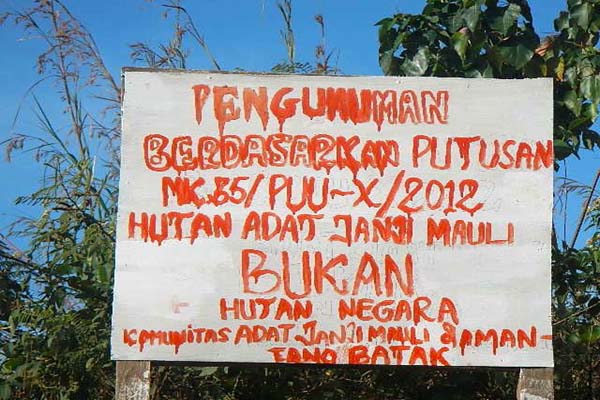 PENGUMUMAN
BERDASARKAN PUTUSAN
MK.35/PUU~X/2012
HUTAN ADAT JANJI MAULI
BUKAN
HUTAN NEGARA
KOMUNITAS ADAT JANJI MAULI
TANO BATAK